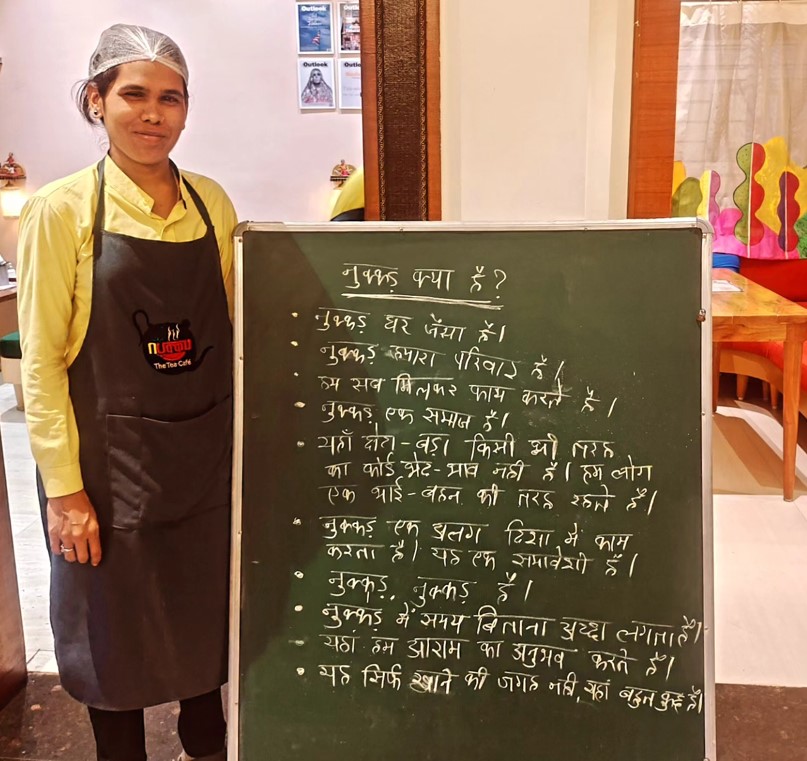 Outlook
Outlook
Outlook
NUKKAD
The Tea Café
नुक्कड़ क्या है?
• नुक्कड़ घर जैसा है।
• नुक्कड़ हमारा परिवार है।
• हम सब मिलकर काम करते है।
• नुक्कड़ एक समाज है।
• यहाँ छोटा-बड़ा किसी भी तरह
का कोई भेद-भाव नहीं है। हम लोग
एक भाई-बहन की तरह रहते है।
• नुक्कड़ एक अलग दिशा में काम
करता है। यह एक समावेशी है।
• नुक्कड़, नुक्कड़ है।
• नुक्कड़ में समय बिताना अच्छा लगता है।
– यहां हम आराम का अनुभव करते है।
• यह सिर्फ खाने की जगह नही, यहां बहुत कुछ है।